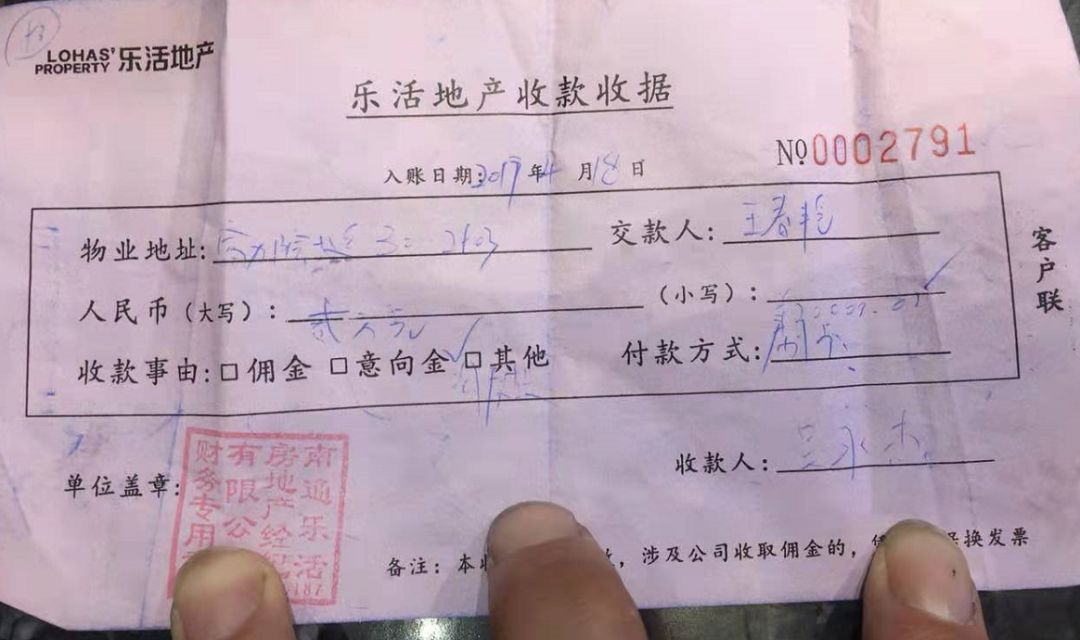 LOHAS' PROPERTY 乐活地产
乐活地产收款收据
№0002791
入账日期:2017年4月18日
物业地址: 2403
交款人:王春艳
人民币(大写):贰万元
(小写):
收款事由:□佣金 □意向金 □其他
付款方式:刷卡
客户联
单位盖章:
收款人:吴永杰
南通乐活
房地产经纪
有限公
财务专用
187
备注:本收 ,涉及公司收取佣金的, 换发票